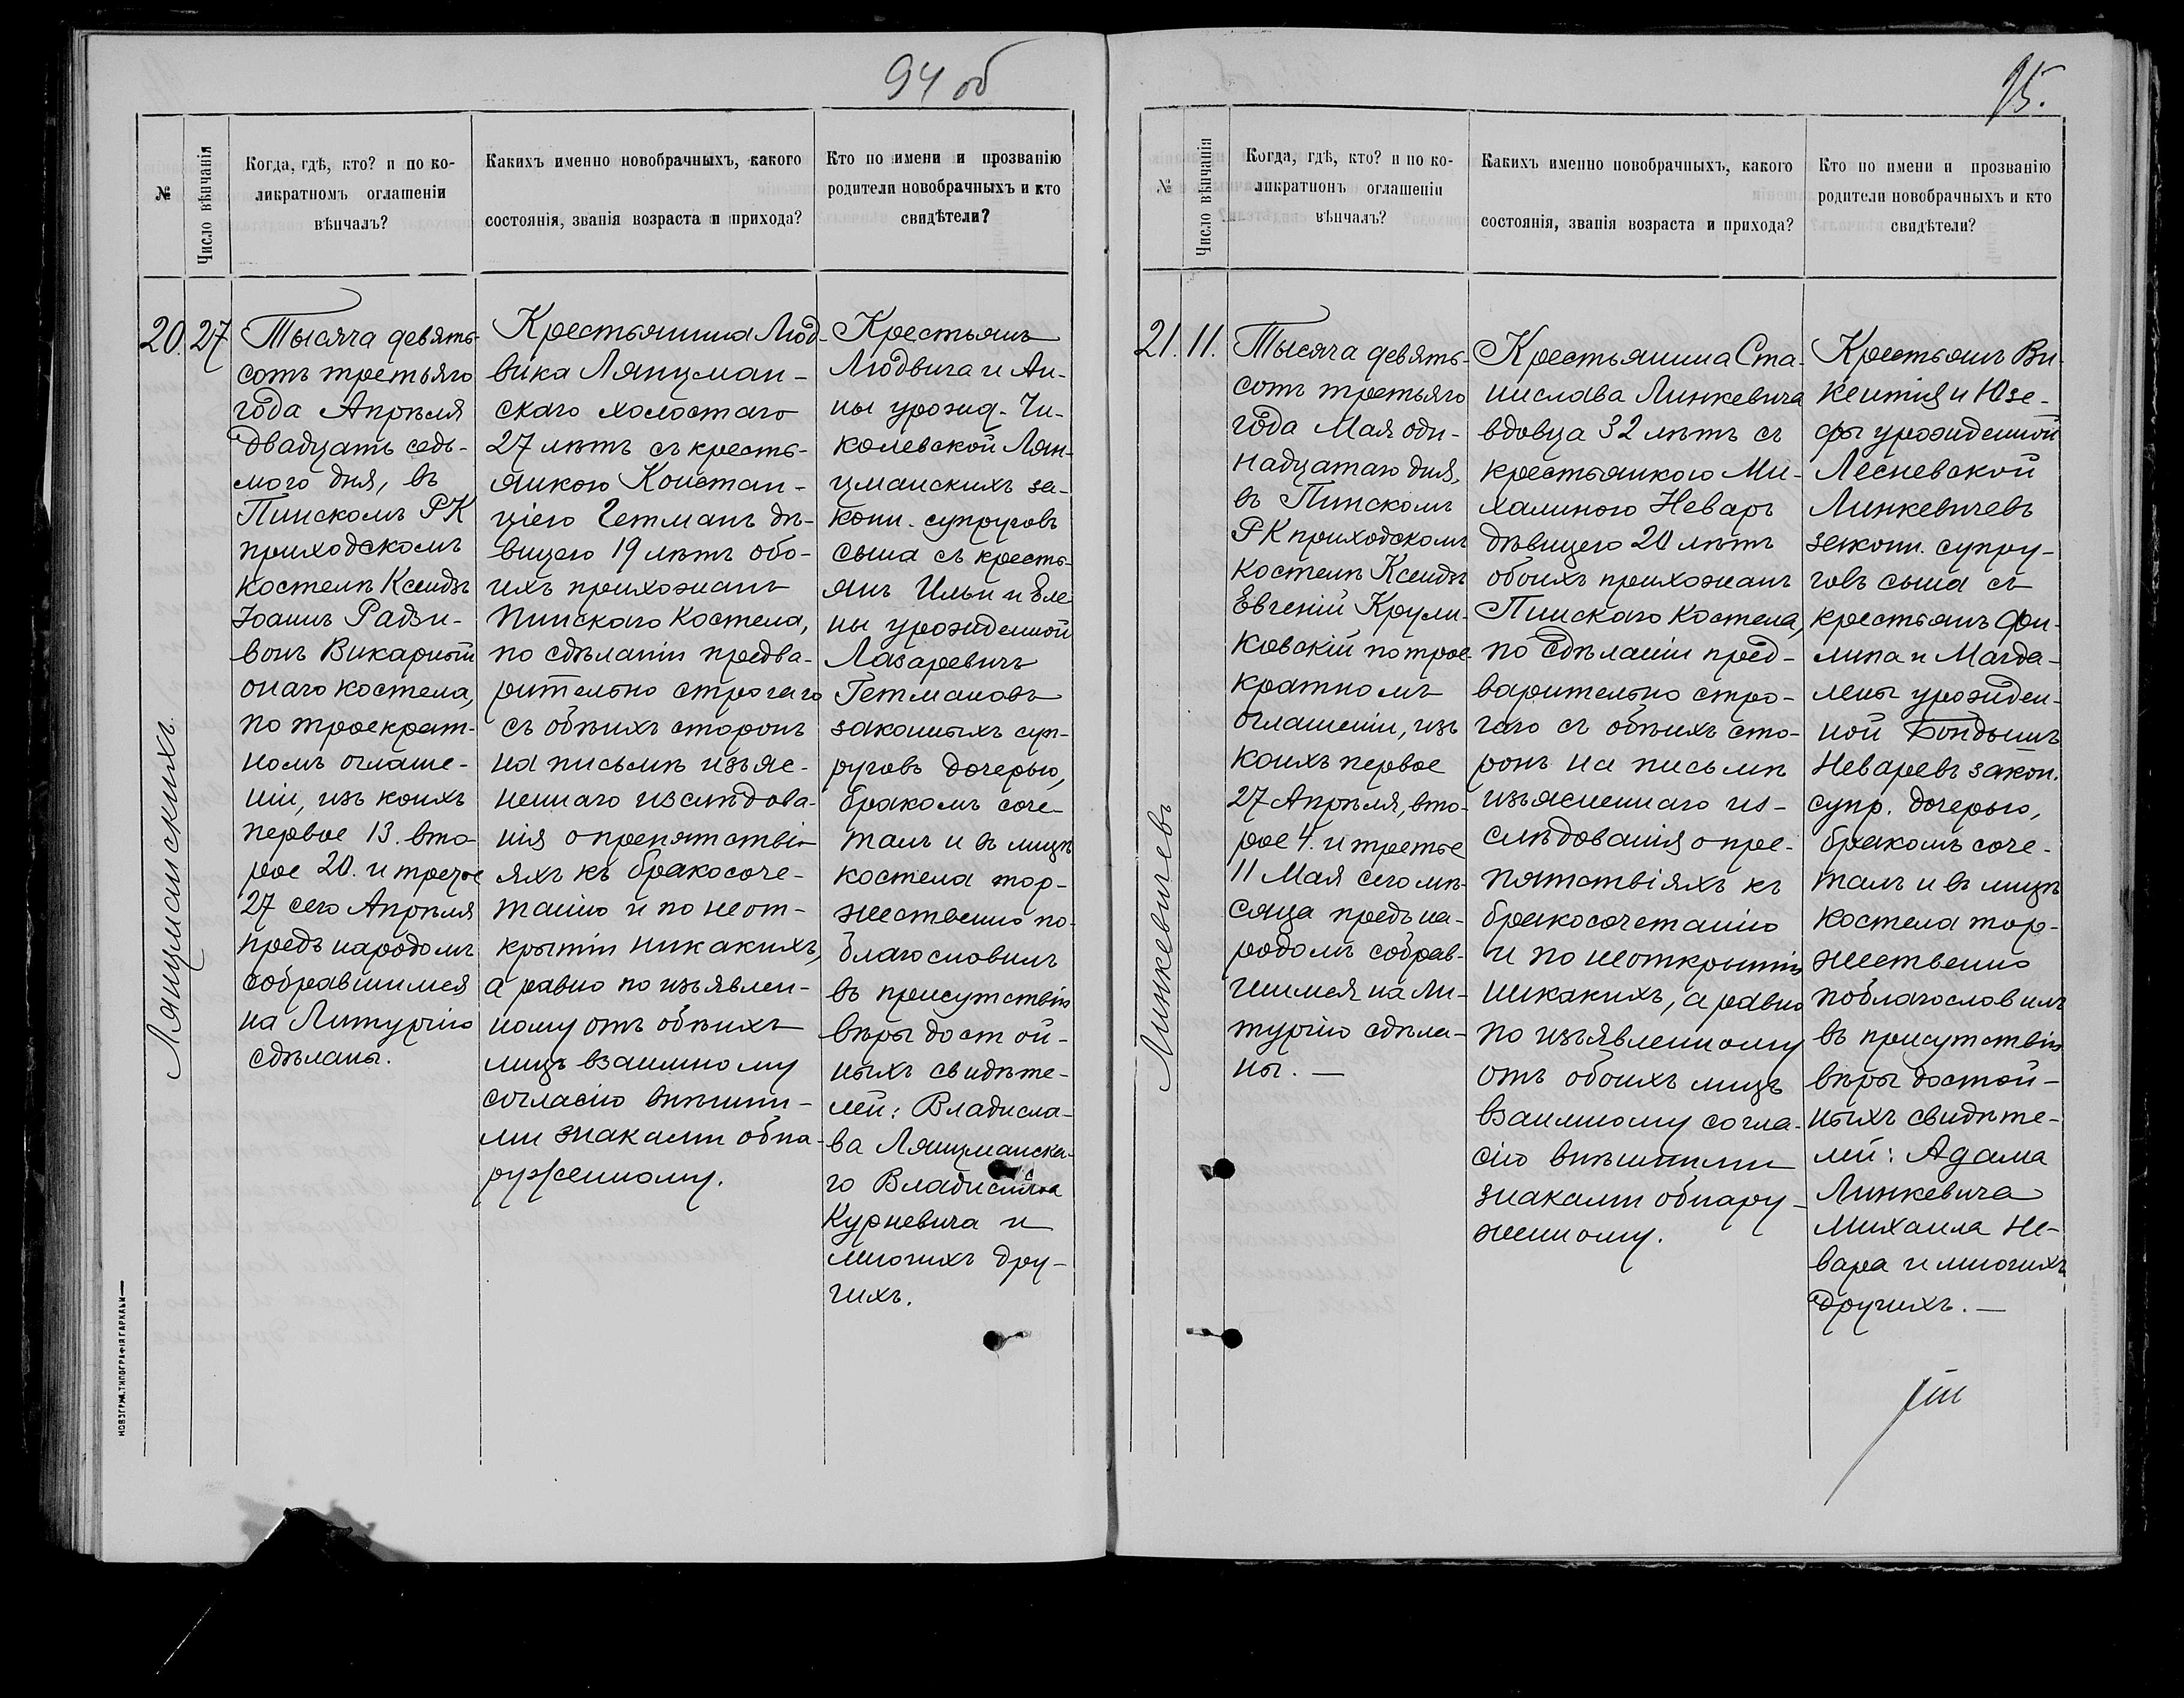 94 об
№
Число вѣнчанія
Когда, гдѣ, кто? и по ко-
ликратномъ оглашеніи
вѣнчалъ?
Какихъ именно новобрачныхъ, какого
состоянія, званія возраста и прихода?
Кто по имени и прозванію
родители новобрачныхъ и кто
свидѣтели?
Ляцманскихъ.
20. 27
Тысяча девять-
сотъ третьяго
года Апрѣля
двадцать седь-
мого дня, въ
Пинскомъ РК
приходскомъ
костелѣ Ксендзъ
Іоаннъ Радзи-
вонъ Викарный
онаго костела,
по троекрат-
номъ оглаше-
ніи, изъ коихъ
первое 13. вто-
рое 20. и третье
27 сего Апрѣля
предъ народомъ
собравшимся
на Литургію
сдѣланы.
Крестьянина Люд-
вика Ляцман-
скаго холостаго
27 лѣтъ съ кресть-
янкою Констан-
ціею Гетманъ дѣ-
вицею 19 лѣтъ обо-
ихъ прихожанъ
Пинскаго Костела,
по сдѣланіи предва-
рительно строгаго
съ обѣихъ сторонъ
на письмѣ изъяс-
неннаго изслѣдова-
нія о препятстві-
яхъ къ бракосоче-
танію и по неот-
крытіи никакихъ,
а равно по изъявлен-
ному отъ обѣихъ
лицъ взаимному
согласію внѣшни-
ми знаками обна-
руженному.
Крестьянъ
Людвига и Ан-
ны урожд. Чи-
колевской Лян-
цманскихъ за-
конн. супруговъ
сына съ кресть-
янъ Ильи и Еле
ны урожденной
Лазаревичъ
Гетмановъ
законныхъ суп-
руговъ дочерью,
бракомъ соче-
талъ и въ лицѣ
костела тор-
жественно по-
благословилъ
въ присутствіи
вѣры достой-
ныхъ свидѣте-
лей: Владисла-
ва Ляцманска-
го Владислава
Курневича и
многихъ дру-
гихъ.
НОВЗГРУД. ТИПОГРАФІЯ ГАРКАВИ
95.
№
Число вѣнчанія
Когда, гдѣ, кто? и по ко-
ликратномъ оглашеніи
вѣнчалъ?
Какихъ именно новобрачныхъ, какого
состоянія, званія возраста и прихода?
Кто по имени и прозванію
родители новобрачныхъ и кто
свидѣтели?
Линкевичевъ
21. 11.
Тысяча девять-
сотъ третьяго
года Мая оди-
надцатаго дня,
въ Пинскомъ
РК приходскомъ
костелѣ Ксендзъ
Евгеній Крули-
ковскій по трое-
кратномъ
оглашеніи, изъ
коихъ первое
27 Апрѣля, вто-
рое 4. и третье
11 Мая сего мѣ-
сяца предъ на-
родомъ собрав-
шимся на Ли-
тургію сдѣла-
ны. —
Крестьянина Ста-
нислава Линкевича
вдовца 32 лѣтъ съ
крестьянкою Ми-
халиною Неваръ
дѣвицею 20 лѣтъ
обоихъ прихожанъ
Пинскаго костела,
по сдѣланіи пред-
варительно стро-
гаго съ обѣихъ сто-
ронъ на письмѣ
изъясненнаго из-
слѣдованія о пре-
пятствіяхъ къ
бракосочетанію
и по неоткрытіи
никакихъ, а равно
по изъявленному
отъ обоихъ лицъ
взаимному согла-
сію внѣшними
знаками обнару-
женному.
Крестьянъ Ви-
кентія и Юзе-
фы урожденной
Лесневской
Линкевичевъ
законн. супру-
говъ сына съ
крестьянъ Фи-
липа и Магда-
лены урожден-
ной Бондынъ
Неваревъ закон.
супр. дочерью,
бракомъ соче-
талъ и въ лицѣ
костела тор-
жественно
поблагословилъ
въ присутствіи
вѣры достой-
ныхъ свидѣте-
лей: Адама
Линкевича
Михаила Не-
вара и многихъ
другихъ. —